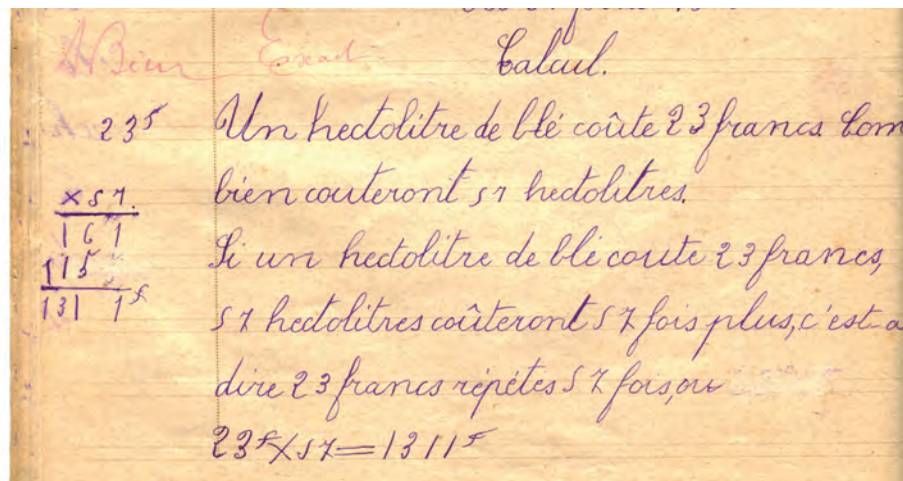 Bien Exact
Calcul.
23f Un hectolitre de blé coûte 23 francs. Com
x57. bien couteront 57 hectolitres.
161 Si un hectolitre de blé coute 23 francs,
115
1311f 57 hectolitres coûteront 57 fois plus, c'est-a
dire 23 francs répétes 57 fois, ou
23f x 57 = 1311f